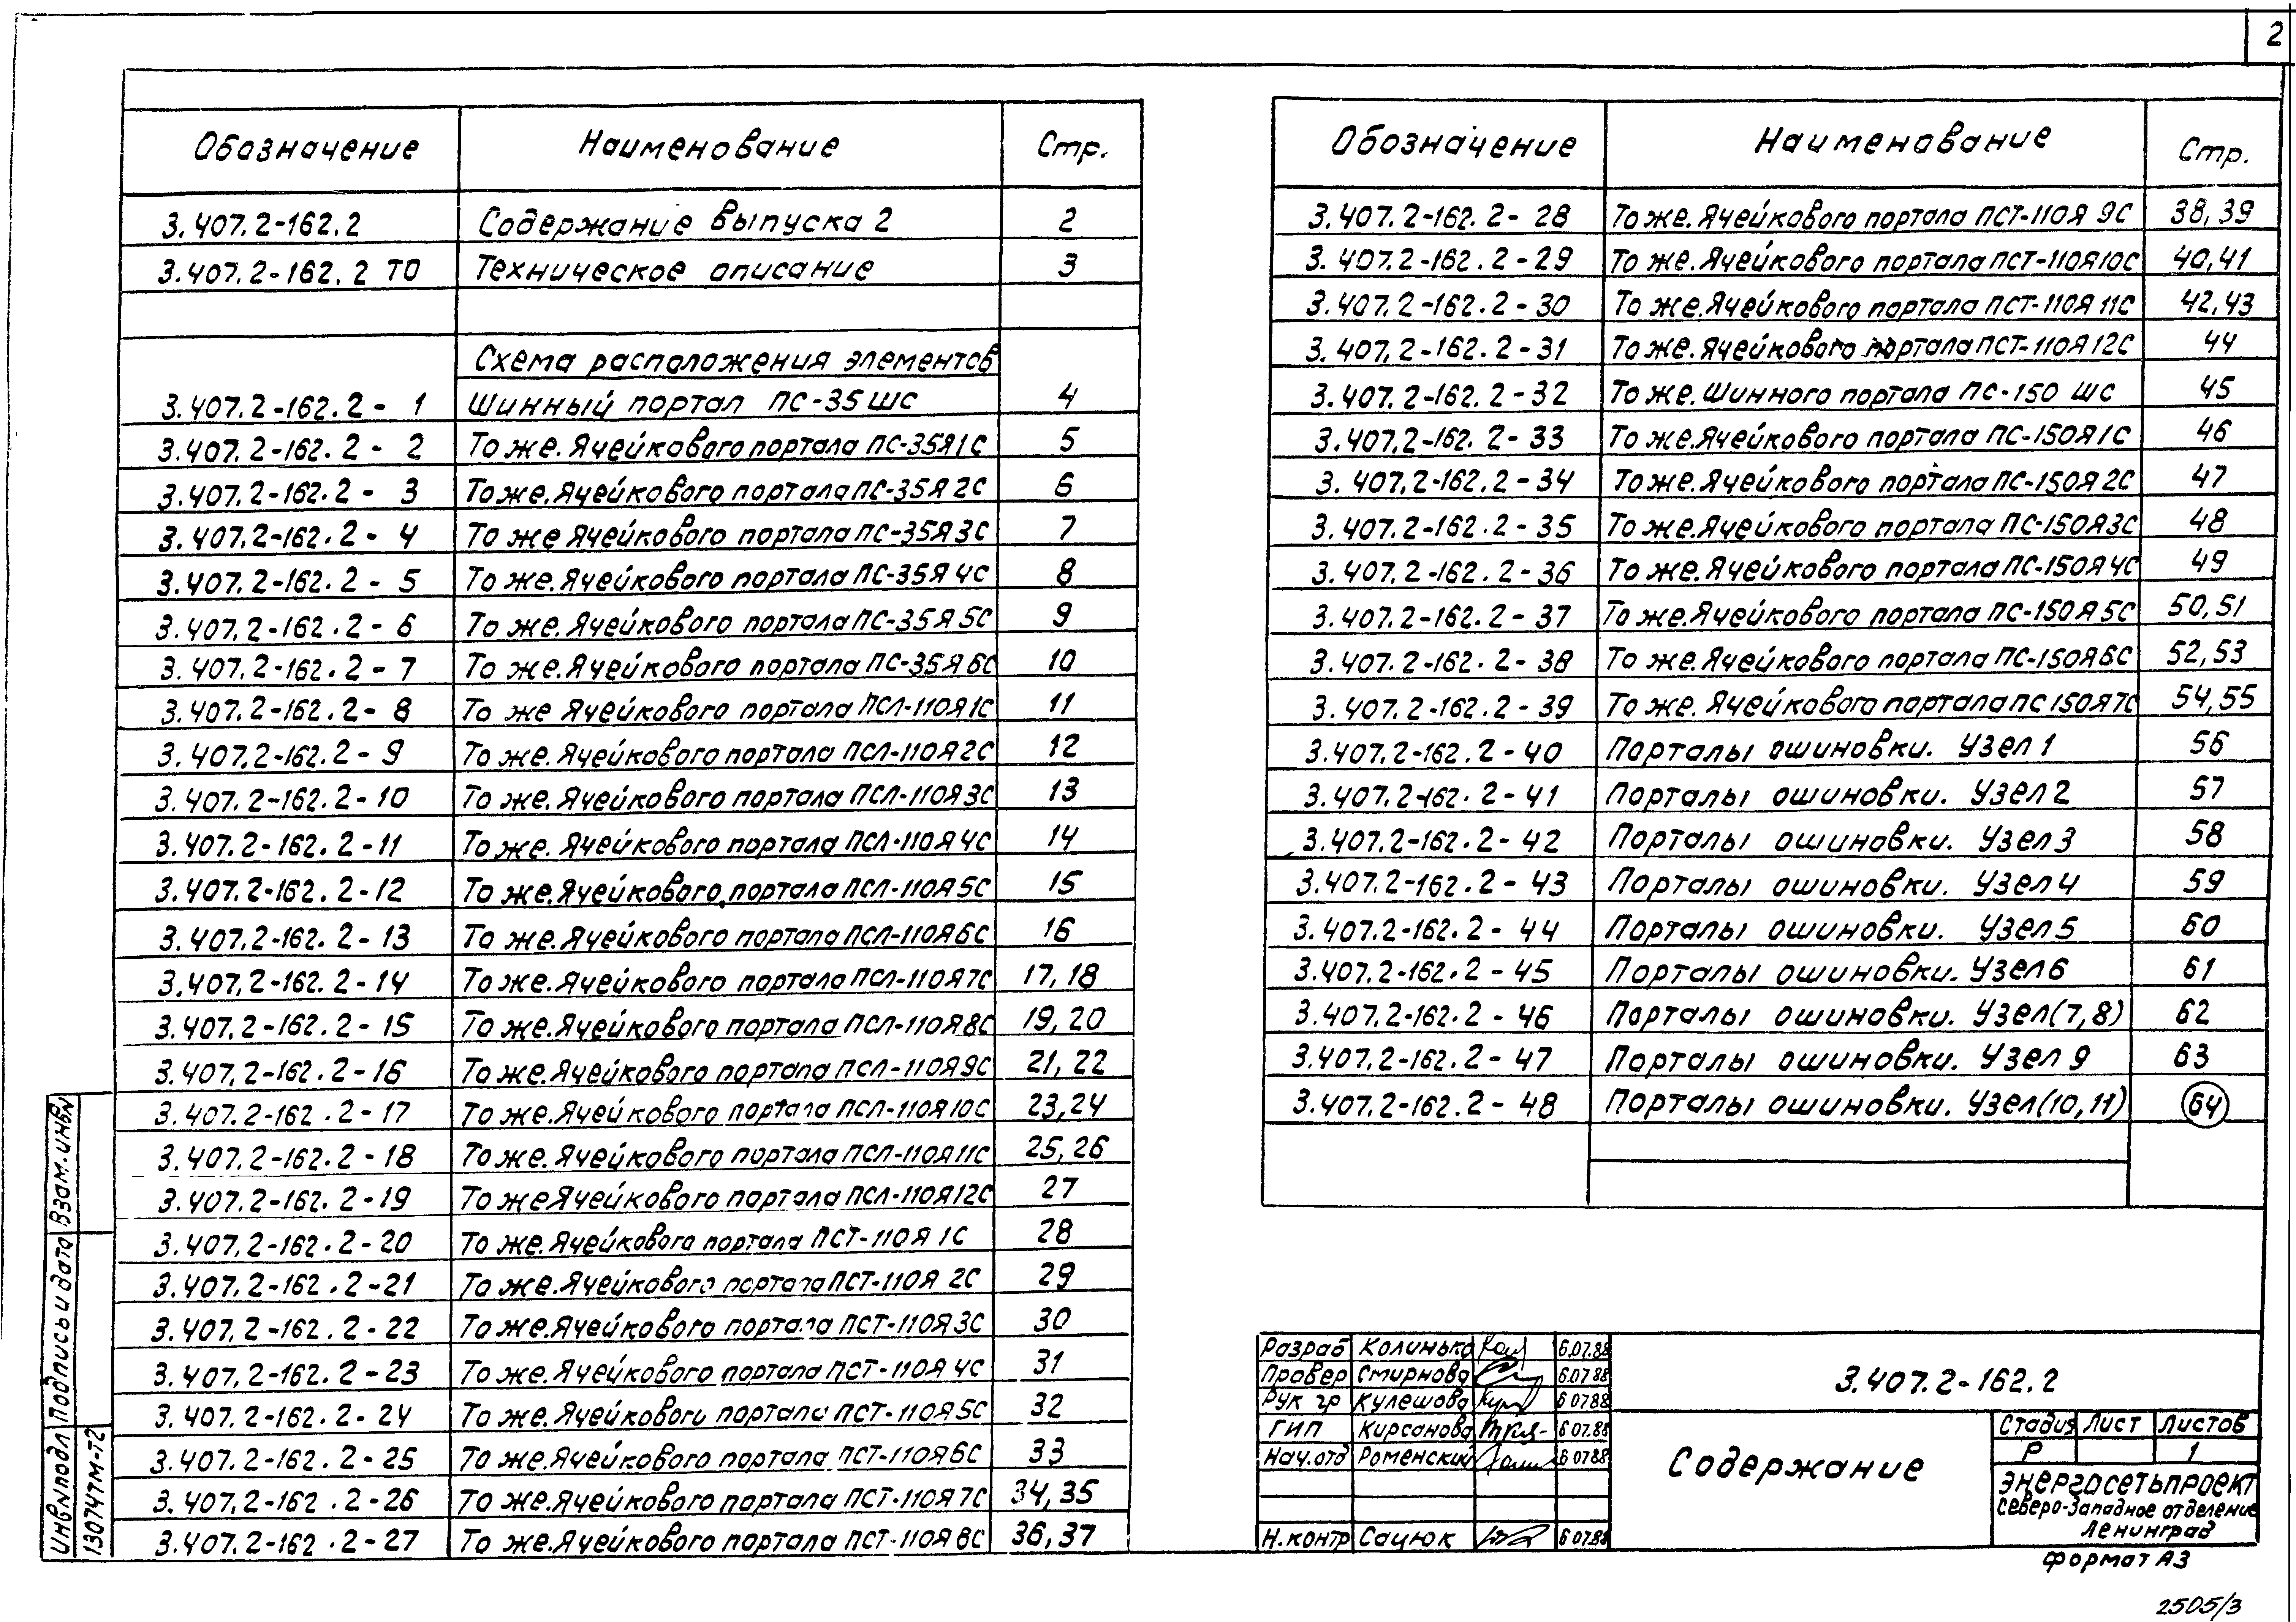 2
Обозначение Наименование Стр.
3.407.2-162.2 Содержание выпуска 2 2
3.407.2-162.2 ТО Техническое описание 3
Схема расположения элементов
3.407.2-162.2- 1 Шинный портал ПС-35ШС 4
3.407.2-162.2- 2 То же. Ячейкового портала ПС-35Я1С 5
3.407.2-162.2- 3 То же. Ячейкового портала ПС-35Я2С 6
3.407.2-162.2- 4 То же Ячейкового портала ПС-35Я3С 7
3.407.2-162.2- 5 То же. Ячейкового портала ПС-35Я4С 8
3.407.2-162.2- 6 То же. Ячейкового портала ПС-35Я5С 9
3.407.2-162.2- 7 То же. Ячейкового портала ПС-35Я6С 10
3.407.2-162.2- 8 То же Ячейкового портала ПСЛ-110Я1С 11
3.407.2-162.2- 9 То же. Ячейкового портала ПСЛ-110Я2С 12
3.407.2-162.2-10 То же. Ячейкового портала ПСЛ-110Я3С 13
3.407.2-162.2-11 То же. Ячейкового портала ПСЛ-110Я4С 14
3.407.2-162.2-12 То же. Ячейкового портала ПСЛ-110Я5С 15
3.407.2-162.2-13 То же. Ячейкового портала ПСЛ-110Я6С 16
3.407.2-162.2-14 То же. Ячейкового портала ПСЛ-110Я7С 17,18
3.407.2-162.2-15 То же. Ячейкового портала ПСЛ-110Я8С 19,20
3.407.2-162.2-16 То же. Ячейкового портала ПСЛ-110Я9С 21,22
3.407.2-162.2-17 То же. Ячейкового портала ПСЛ-110Я10С 23,24
3.407.2-162.2-18 То же. Ячейкового портала ПСЛ-110Я11С 25,26
3.407.2-162.2-19 То же Ячейкового портала ПСЛ-110Я12С 27
3.407.2-162.2-20 То же. Ячейкового портала ПСТ-110Я 1С 28
3.407.2-162.2-21 То же. Ячейкового портала ПСТ-110Я 2С 29
3.407.2-162.2-22 То же. Ячейкового портала ПСТ-110Я3С 30
3.407.2-162.2-23 То же. Ячейкового портала ПСТ-110Я 4С 31
3.407.2-162.2-24 То же. Ячейкового портала ПСТ-110Я5С 32
3.407.2-162.2-25 То же. Ячейкового портала ПСТ-110Я6С 33
3.407.2-162.2-26 То же. Ячейкового портала ПСТ-110Я7С 34,35
3.407.2-162.2-27 То же. Ячейкового портала ПСТ-110Я8С 36,37
Обозначение Наименование Стр.
3.407.2-162.2-28 То же. Ячейкового портала ПСТ-110Я 9С 38,39
3.407.2-162.2-29 То же. Ячейкового портала ПСТ-110Я10С 40,41
3.407.2-162.2-30 То же. Ячейкового портала ПСТ-110Я 11С 42,43
3.407.2-162.2-31 То же. Ячейкового портала ПСТ-110Я12С 44
3.407.2-162.2-32 То же. Шинного портала ПС-150 ШС 45
3.407.2-162.2-33 То же. Ячейкового портала ПС-150Я1С 46
3.407.2-162.2-34 То же. Ячейкового портала ПС-150Я2С 47
3.407.2-162.2-35 То же. Ячейкового портала ПС-150Я3С 48
3.407.2-162.2-36 То же. Ячейкового портала ПС-150Я4С 49
3.407.2-162.2-37 То же. Ячейкового портала ПС-150Я5С 50,51
3.407.2-162.2-38 То же. Ячейкового портала ПС-150Я6С 52,53
3.407.2-162.2-39 То же. Ячейкового портала ПС 150Я7С 54,55
3.407.2-162.2-40 Порталы ошиновки. Узел 1 56
3.407.2-162.2-41 Порталы ошиновки. Узел 2 57
3.407.2-162.2-42 Порталы ошиновки. Узел 3 58
3.407.2-162.2-43 Порталы ошиновки. Узел 4 59
3.407.2-162.2-44 Порталы ошиновки. Узел 5 60
3.407.2-162.2-45 Порталы ошиновки. Узел 6 61
3.407.2-162.2-46 Порталы ошиновки. Узел (7,8) 62
3.407.2-162.2-47 Порталы ошиновки. Узел 9 63
3.407.2-162.2-48 Порталы ошиновки. Узел (10,11) 64
Взам. инв N
Подпись и дата
Инв N подл
13074ТМ-т2
Разраб Колинько 6.07.88
Провер Смирнова 6.07 88
Рук гр Кулешова 6 07 88
ГИП Кирсанова 6 07.88
Нач. отд Роменский 6 07 88
Н. контр Сацюк 6 07.88
3.407.2-162.2
Содержание
Стадия Лист Листов
Р 1
Энергосетьпроект
Северо-Западное отделение
Ленинград
Формат А3
2505/3